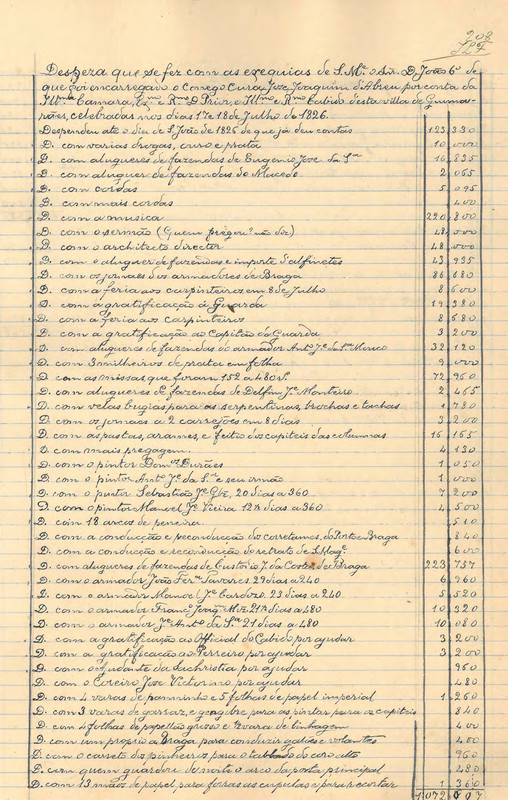 208
Despeza que se fez com as exequias de S. Mᵉ o Snr. D. João 6º de
que foi encarregado o Conego Cura, José Joaquim d'Abreu, por conta da
Illᵐᵃ Camara, Exᵐᵒ e Rᵐᵒ D. Prior, e Illᵐᵒ e Rᵐᵒ Cabido d'esta villa de Guima-
rães, celebradas nos dias 17 e 18 de Julho de 1826.
Despendeu até o dia de S. João de 1826 de que já deu contas 123,330
D. com varias drogas, cirro e prata 10,000
D. com alugueres de fazendas de Eugenio José da Sᵃ 16,835
D. com aluguer de fazendas do Macedo 2,065
D. com cordas 5,095
D. com mais cordas ,400
D. com a musica 220,800
D. com o sermão (Quem prégou? não diz) 48,000
D. com o architecto director 48,000
D. com o aluguer de fazendas e importe d'alfinetes 43,935
D. com os jornaes dos armadores de Braga 86,680
D. com a feria aos carpinteiros em 8 de Julho 8,600
D. com a gratificação á Guarda 19,380
D. com a feria aos carpinteiros 8,680
D. com a gratificação ao Capitão da Guarda 3,200
D. com alugueres de fazendas do armador Antº Jᵉ de 32,120
D. com 3 milheiros de prata em folha 9,000
D. com as missas que foram 152 a 480 rˢ. 72,960
D. com alugueres de fazendas de Delfim Jᵉ Monteiro 2,465
D. com velas bugias para as serpentinas, brochas e tachas 1,780
D. com os jornaes a 2 carrejões em 8 dias 3,200
D. com as pastas, arames, e feitio dos capiteis das columnas 16,165
D. com mais pregagem 4,130
D. com o pintor Domᵒˢ Durães 1,050
D. com o pintor Antº Jᵉ da Sᵃ e seu irmão 1,000
D. com o pintor Sebastião Jᵉ Glz, 20 dias a 360 7,200
D. com o pintor Manoel Jᵉ Vieira 12½ a 360 4,500
D. com 18 arcos de peneira ,510
D. com a conducção e reconducção do corretames, do Porto e Braga ,840
D. com a conducção e reconducção do retrato de S. Magᵉ ,600
D. com alugueres de fazendas de Custodio J. da Costa, de Braga 223,737
D. com o armador João Ferᵃ Tavares 29 dias a 240 6,960
D. com o armador Manoel Jᵉ Cardozo, 23 dias a 240 5,520
D. com o armador Francᵒ Joaqᵐ 21½ dias a 480 10,320
D. com o armador Jᵉ Antº da Sᵃ 21 dias a 480 10,080
D. com a gratificação ao Official do Cabido por ajudar 3,200
D. com a gratificação ao Perreiro por ajudar 3,200
D. com o ajudante da Sachristia por ajudar ,960
D. com o Coreiro José Victorino por ajudar ,480
D. com 4 varas de panninho e 5 folhas de papel imperial 1,260
D. com 3 varas de e gengibre para as pintar para os capiteis ,840
D. com 4 folhas de papellão grosso e vara de linhagem ,400
D. com um proprio a Braga para conduzir galões e volantes ,400
D. com o carreto dos pinheiros para o tablado do coro alto ,960
D. com quem guardou de noite o arco da porta principal ,480
D. com 13 mãos de papel para forrar as e para recortar 1,360
1:072,997